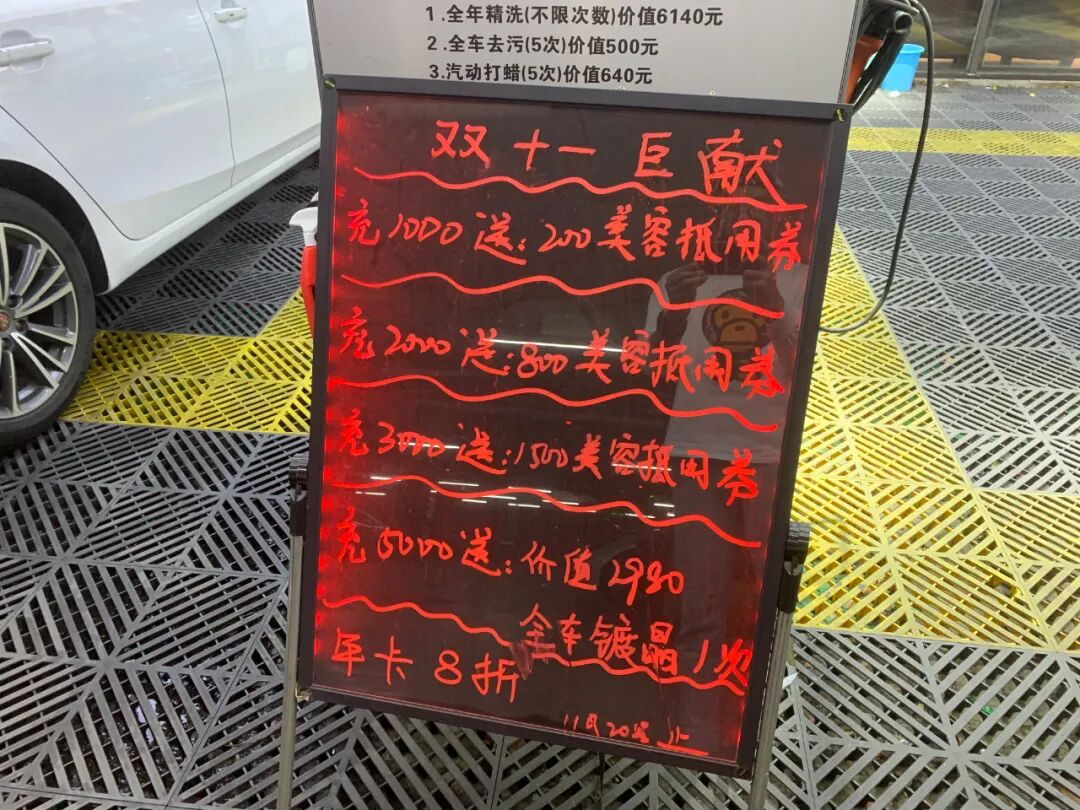 1.全年精洗(不限次数)价值6140元
2.全车去污(5次)价值500元
3.汽动打蜡(5次)价值640元
双十一巨献
充1000送:200美容抵用券
充2000送:800美容抵用券
充3000送:1500美容抵用券
充5000送:价值2980
全车镀晶1次
年卡8折
11月20号止